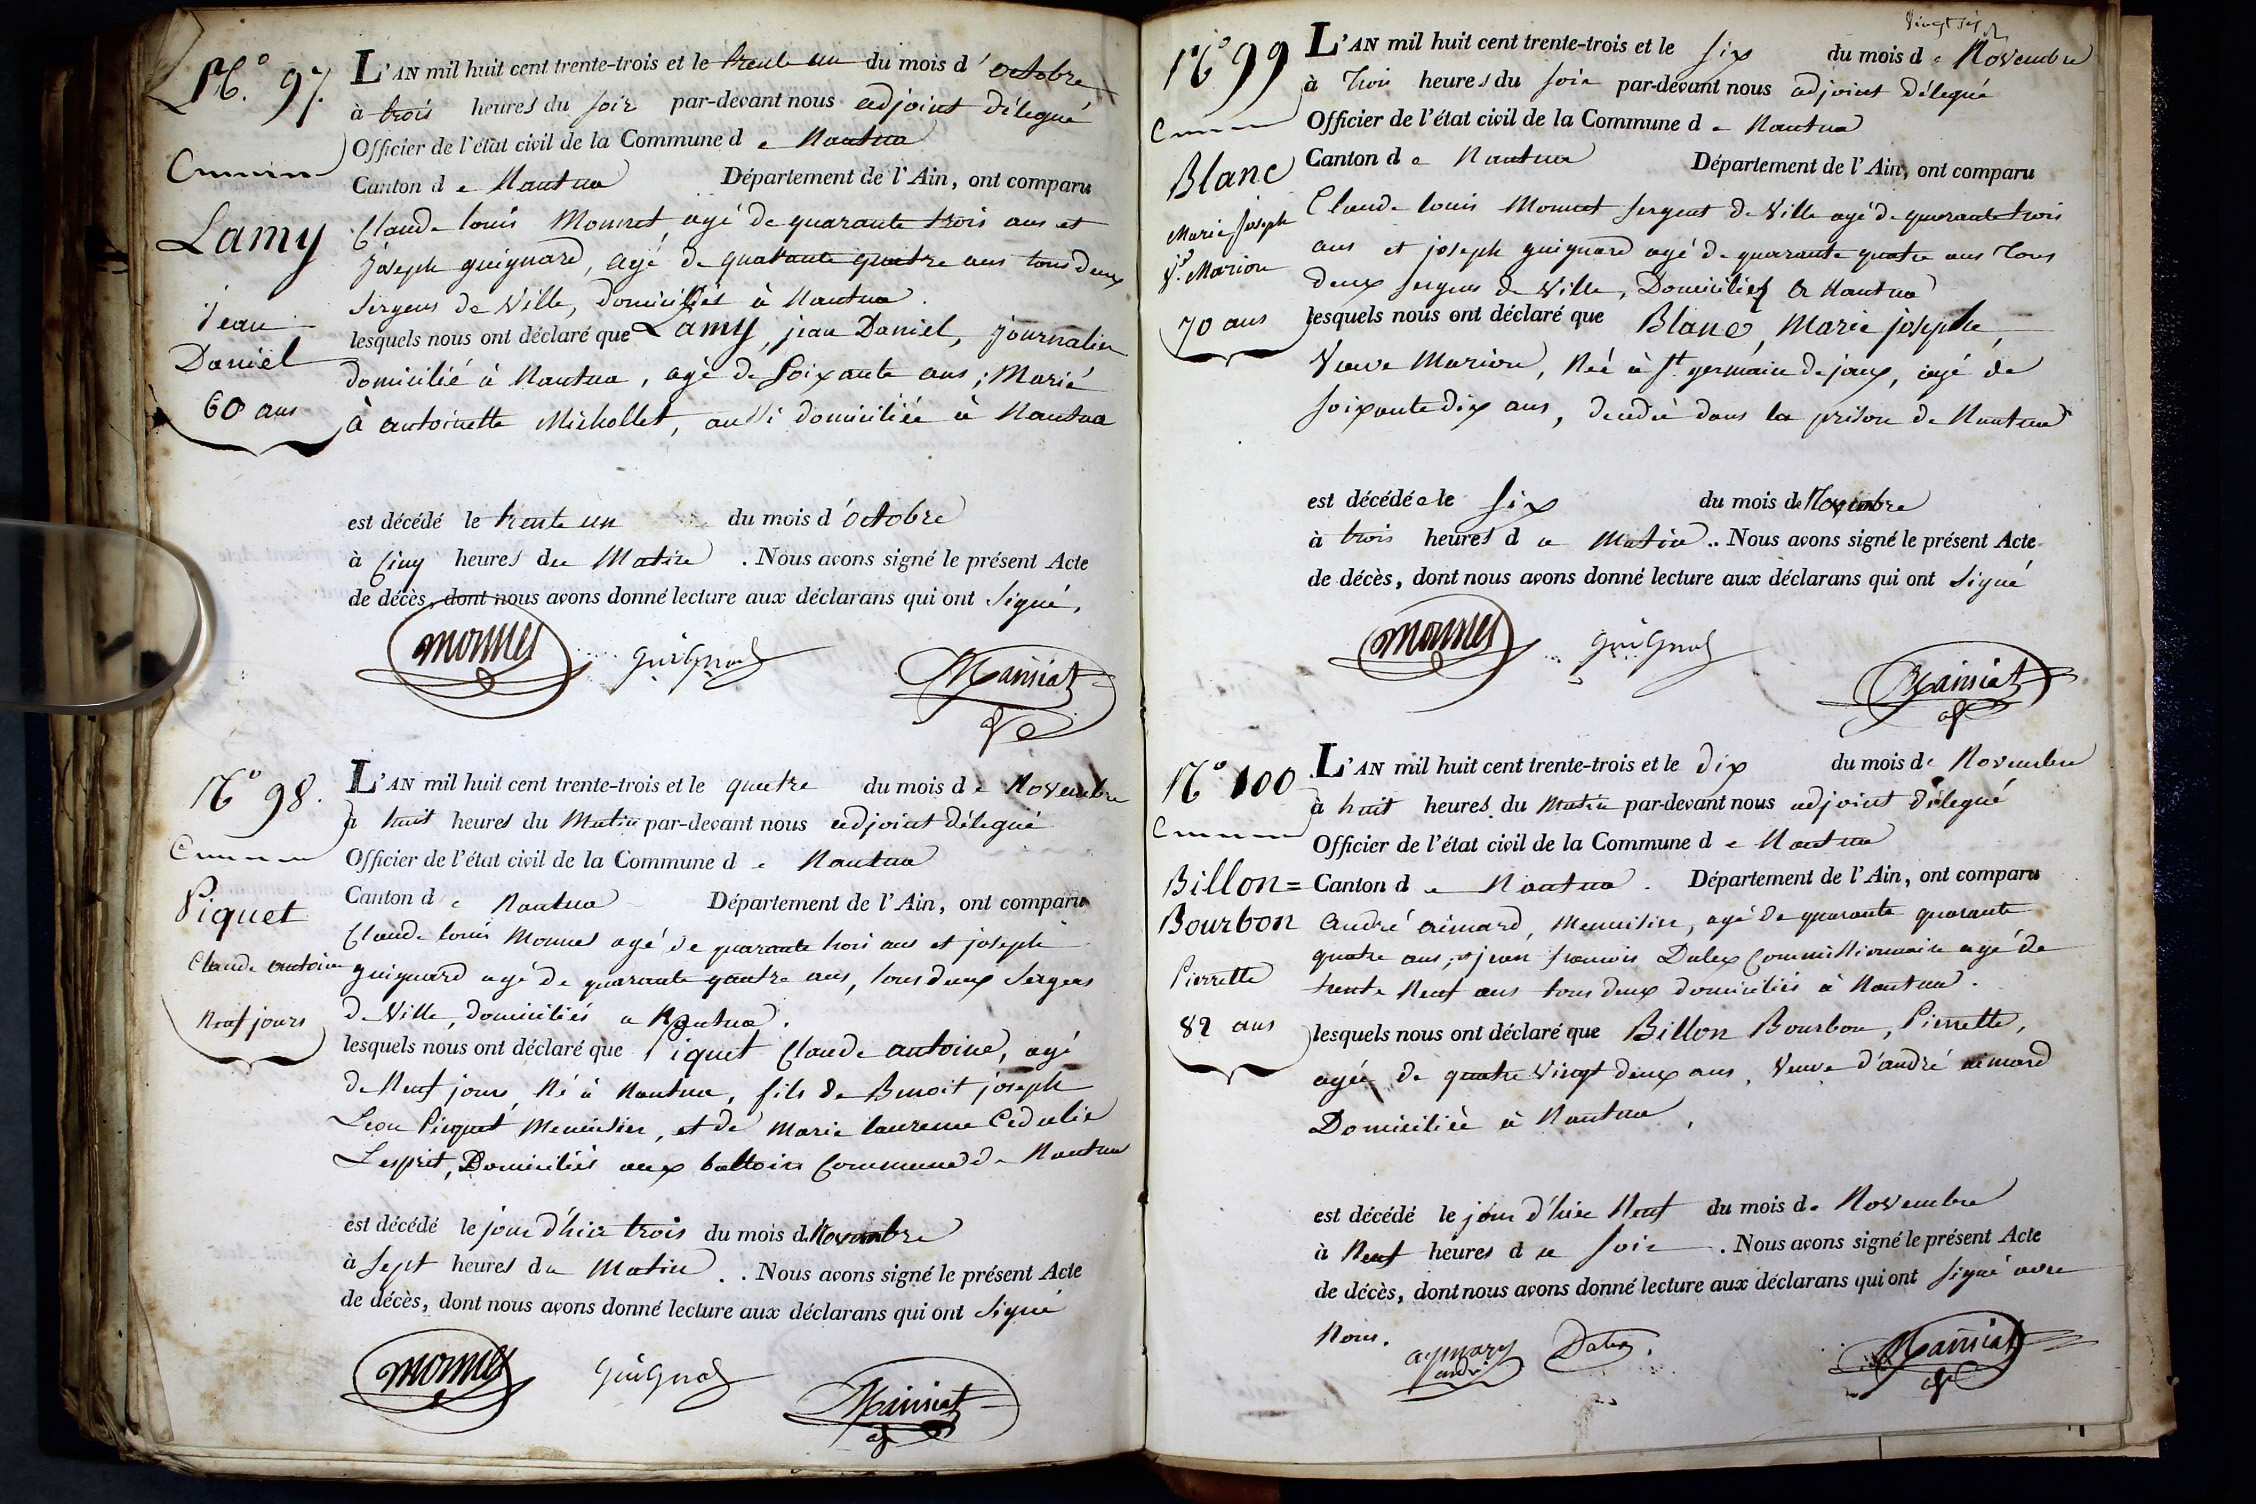 N.° 97.
Lamy
jean
Daniel
60 ans
L'AN mil huit cent trente-trois et le trente un du mois d'octobre
à trois heures du soir par-devant nous adjoint délegué
Officier de l'état civil de la Commune de Nantua
Canton de Nantua Département de l'Ain, ont comparu
Claude louis Monnet, agé de quarante trois ans et
joseph guignard, agé de quatante quatre ans tous deux
sergens de Ville, domiciliés à Nantua.
lesquels nous ont déclaré que Lamy, jean Daniel, journalier
domicilié à Nantua, agé de soixante ans; Marié
à antoinette Michollet, aussi domiciliée à Nantua
est décédé le trente un du mois d'octobre
à Cinq heures du Matin. Nous avons signé le présent Acte
de décès, dont nous avons donné lecture aux déclarans qui ont signé.
monnet guignard Mainiat
N.° 98.
Piquet
Claude antoine
Neuf jours
L'AN mil huit cent trente-trois et le quatre du mois de Novembre
à huit heures du Matin par-devant nous adjoint délegué
Officier de l'état civil de la Commune de Nantua
Canton de Nantua Département de l'Ain, ont comparu
Claude louis Monnet agé de quarante trois ans et joseph
guignard agé de quarante quatre ans, tous deux sergens
de Ville, domiciliés a Nantua.
lesquels nous ont déclaré que Piquet Claude antoine, agé
de Neuf jours, Né à Nantua, fils de Benoit joseph
Leon Piquet Menuisier, et de Marie laurence
Lesprit, Domiciliés aux battoirs Commune de Nantua
est décédé le jour d'hier trois du mois de Novembre
à sept heures du Matin. Nous avons signé le présent Acte
de décès, dont nous avons donné lecture aux déclarans qui ont signé
monnet guignard Mainiat
Vingt six
N° 99
Blanc
Marie Joseph
V.e Marion
70 ans
L'AN mil huit cent trente-trois et le six du mois de Novembre
à Trois heures du soir par-devant nous adjoint délegué
Officier de l'état civil de la Commune de Nantua
Canton de Nantua Département de l'Ain, ont comparu
Claude louis Monnet sergent de Ville agé de quarante trois
ans et joseph guignard agé de quarante quatre ans Tous
deux sergens de Ville, Domiciliés à Nantua
lesquels nous ont déclaré que Blanc, Marie josephe,
Veuve Marion, Née à St germain de joux, agé de
soixante dix ans, décédée dans la prison de Nantua
est décédée le six du mois de Novembre
à trois heures du Matin. Nous avons signé le présent Acte
de décès, dont nous avons donné lecture aux déclarans qui ont signé
monnet guignard Mainiat
N° 100
Billon=
Bourbon
Pierrette
82 ans
L'AN mil huit cent trente-trois et le dix du mois de Novembre
à huit heures du Matin par-devant nous adjoint délegué
Officier de l'état civil de la Commune de Nantua
Canton de Nantua. Département de l'Ain, ont comparu
andré aimard, Menuisier, agé de quarante quarante
quatre ans, et jean francois Dalex Commissionnaire agé de
trente Neuf ans tous deux domiciliés à Nantua.
lesquels nous ont déclaré que Billon Bourbon, Pierrette,
agée de quatre Vingt deux ans, Veuve d'andré aimard
Domiciliée à Nantua,
est décédé le jour d'hier Neuf du mois de Novembre
à Neuf heures du soir. Nous avons signé le présent Acte
de décès, dont nous avons donné lecture aux déclarans qui ont signé avec
Nous.
aymard andré Dalex. Mainiat